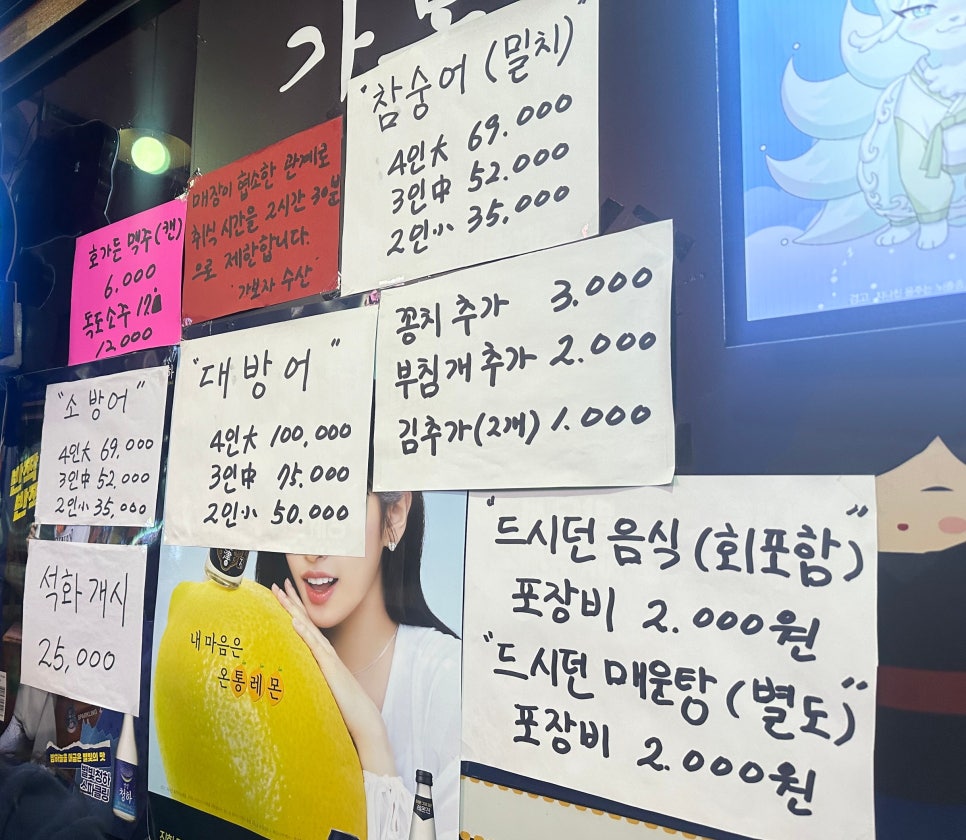 가보
"참숭어(밀치)"
4인大 69.000
3인中 52.000
2인小 35.000
매장이 협소한 관계로
취식 시간을 2시간 30분
으로 제한합니다.
"가보자 수산"
호가든 맥주(캔)
6.000
독도소주 17
12.000
꽁치 추가 3.000
부침개 추가 2.000
김추가(2개) 1.000
"대방어"
4인大 100,000
3인中 75.000
2인小 50.000
"소방어"
4인大 69.000
3인中 52.000
2인小 35,000
석화 개시
25,000
"드시던 음식(회포함)"
포장비 2.000원
"드시던 매운탕(별도)"
포장비 2.000원
내 마음은
온통 레몬
별빛청하
스파클링
청하